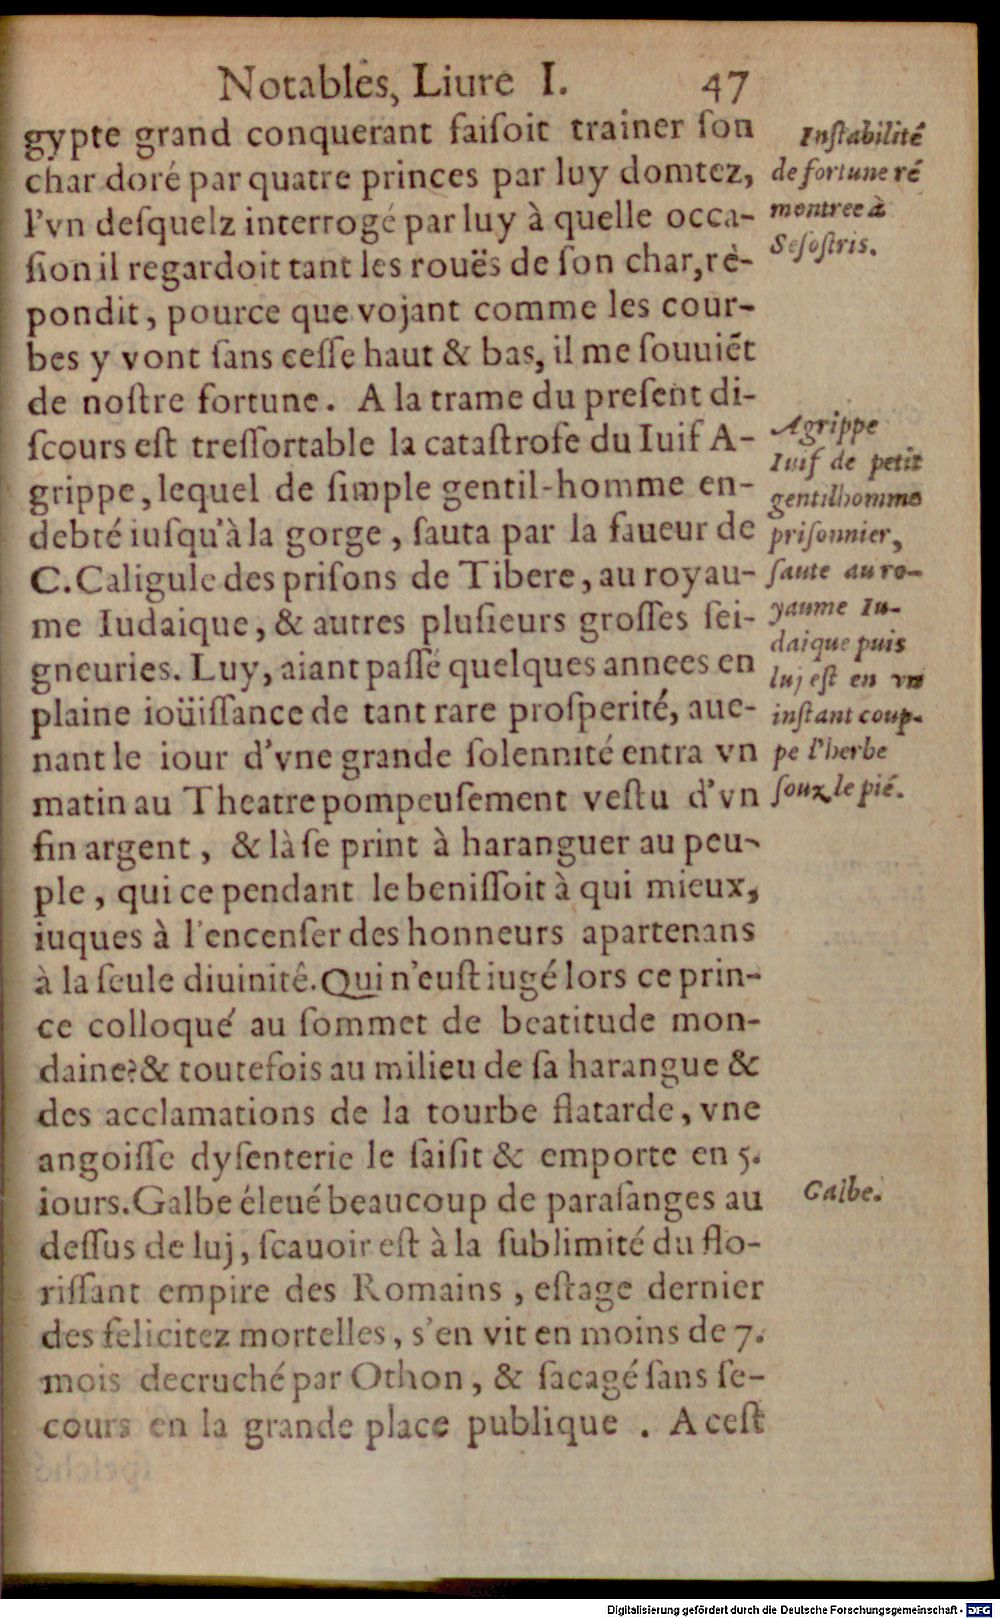 Notables, Liure I. 47
gypte grand conquerant faiſoit trainer ſon
char doré par quatre princes par luy domtez,
l'vn deſquelz interrogé par luy à quelle occa-
ſion il regardoit tant les rouës de ſon char, rè-
pondit, pource que vojant comme les cour-
bes y vont ſans ceſſe haut & bas, il me ſouuiẽt
de noſtre fortune. A la trame du preſent di-
ſcours eſt treſſortable la cataſtrofe du Iuif A-
grippe, lequel de ſimple gentil-homme en-
debté iuſqu'à la gorge, ſauta par la faueur de
C. Caligule des priſons de Tibere, au royau-
me Iudaique, & autres pluſieurs groſſes ſei-
gneuries. Luy, aiant paſſé quelques annees en
plaine ioüiſſance de tant rare proſperité, aue-
nant le iour d'vne grande ſolennité entra vn
matin au Theatre pompeuſement veſtu d'vn
fin argent, & là ſe print à haranguer au peu-
ple, qui ce pendant le beniſſoit à qui mieux,
iuques à l'encenſer des honneurs apartenans
à la ſeule diuinité. Qui n'euſt iugé lors ce prin-
ce colloqué au ſommet de beatitude mon-
daine? & toutefois au milieu de ſa harangue &
des acclamations de la tourbe flatarde, vne
angoiſſe dyſenterie le ſaiſit & emporte en 5.
iours. Galbe éleué beaucoup de paraſanges au
deſſus de luj, ſcauoir eſt à la ſublimité du flo-
riſſant empire des Romains, eſtage dernier
des felicitez mortelles, s'en vit en moins de 7.
mois decruché par Othon, & ſacagé ſans ſe-
cours en la grande place publique. A ceſt
Inſtabilité
de fortune ré
montree à
Seſoſtris.
Agrippe
Iuif de petit
gentilhomme
priſonnier,
ſaute au ro-
yaume Iu-
daique puis
luj eſt en vn
inſtant coup-
pe l'herbe
ſouz le pié.
Galbe.
Digitalisierung gefördert durch die Deutsche Forschungsgemeinschaft - DFG